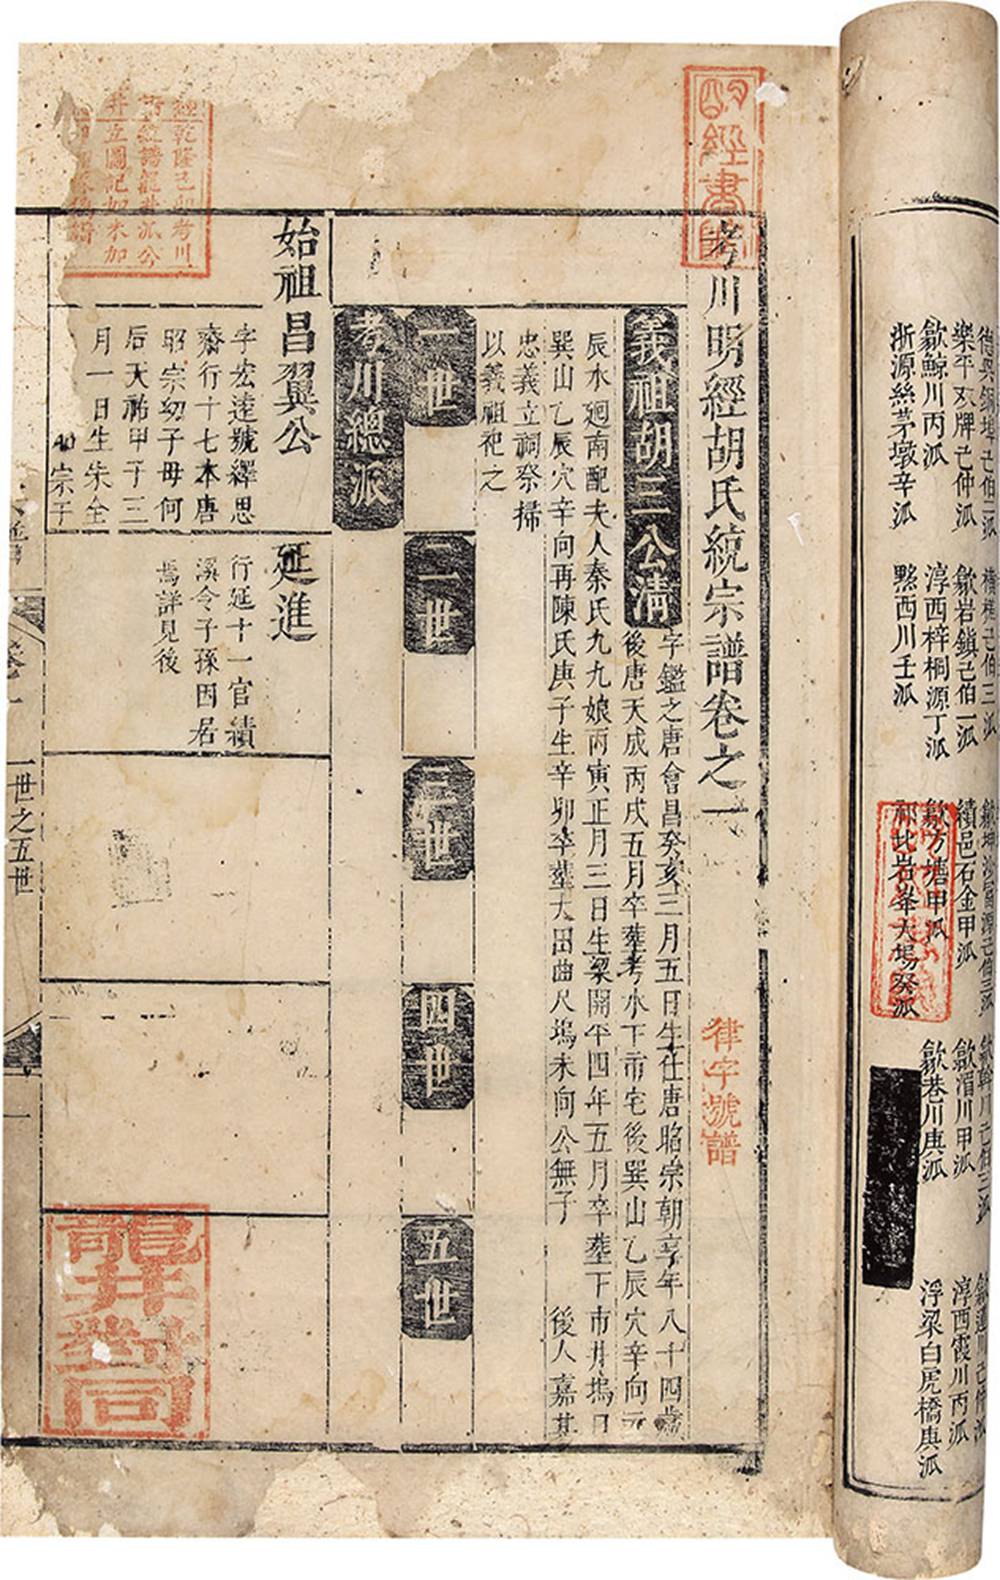 明經書院
考川明經胡氏統宗譜卷之一
律字號譜
義祖胡三公清
字鑑之唐會昌癸亥三月五日生仕唐昭宗朝享年八十四歲
後唐天成丙戌五月卒塟考水下市宅後巽山乙辰穴辛向元
辰水廻南配夫人秦氏九九娘丙寅正月三日生梁開平四年五月卒塟下市井塢
巽山乙辰穴辛向再陳氏庚子生辛卯卒塟大田曲尺塢未向公無子
後人嘉其
忠義立祠祭掃
以義祖祀之
一世
二世
三世
四世
五世
考川總派
始祖昌翼公
字宏遠號繹思
齋行十七本唐
昭宗幼子母何
后天祐甲子三
月一日生朱全
宗于
延進
行延十一官績
溪令子孫因居
焉詳見後
經乾隆己卯考川
龍井對同
卷之一
一世之五世
一
樂平双牌己仲派
歙岩鎮己伯一派
績邑石金甲派
歙湄川甲派
淳西霞川丙派
歙鯨川丙派
淳西梓桐源丁派
歙方塘甲派
歙巷川庚派
浮梁白虎橋庚派
浙源絲茅墩辛派
黟西川壬派